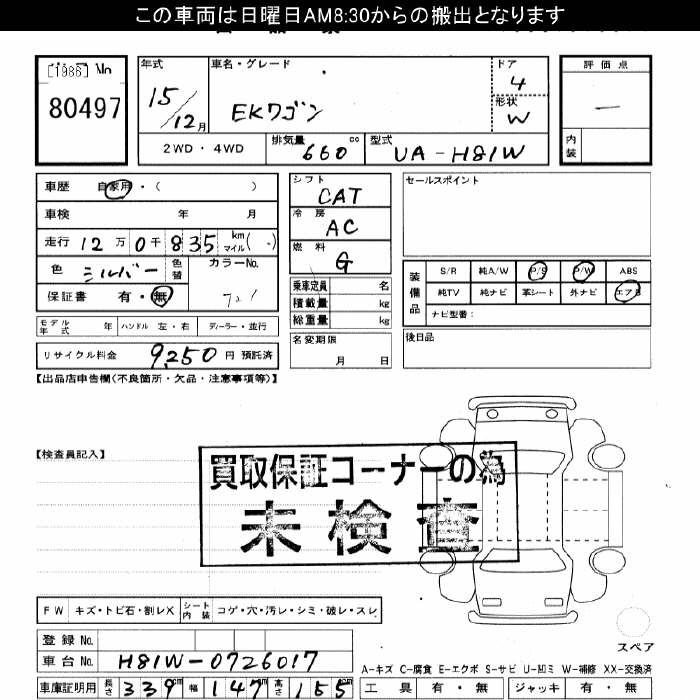 この車両は日曜日AM8:30からの搬出となります
[1986] No
80497
年式
15/12月
車名・グレード
EKワゴン
ドア
4
形状
W
評価点
—
内装
2WD・4WD
排気量 660 cc
型式 UA-H81W
車歴 自家用・( )
車検 年 月
走行 12万0千835 km マイル( )
色 シルバー 色替
カラーNo.
保証書 有・無
モデル年式 年 ハンドル 左・右 ディーラー・並行
リサイクル料金 9,250 円 預託済
シフト CAT
冷房 AC
燃料 G
乗車定員 名
積載量 kg
総重量 kg
名変期限
月 日
セールスポイント
装備品
S/R 純A/W P/S P/W ABS
純TV 純ナビ 革シート 外ナビ エアB
ナビ型番:
後日品
【出品店申告欄(不良箇所・欠品・注意事項等)】
【検査員記入】
買取保証コーナーの為
未検査
FW キズ・トビ石・割レX シート内装 コゲ・穴・汚レ・シミ・破レ・スレ
登録No.
車台No. H81W-0726017
車庫証明用 長さ 339 cm 幅 147 cm 高さ 155 cm
スペア
A-キズ C-腐食 E-エクボ S-サビ U-凹ミ W-補修 XX-交換済
工具 有・無 ジャッキ 有・無